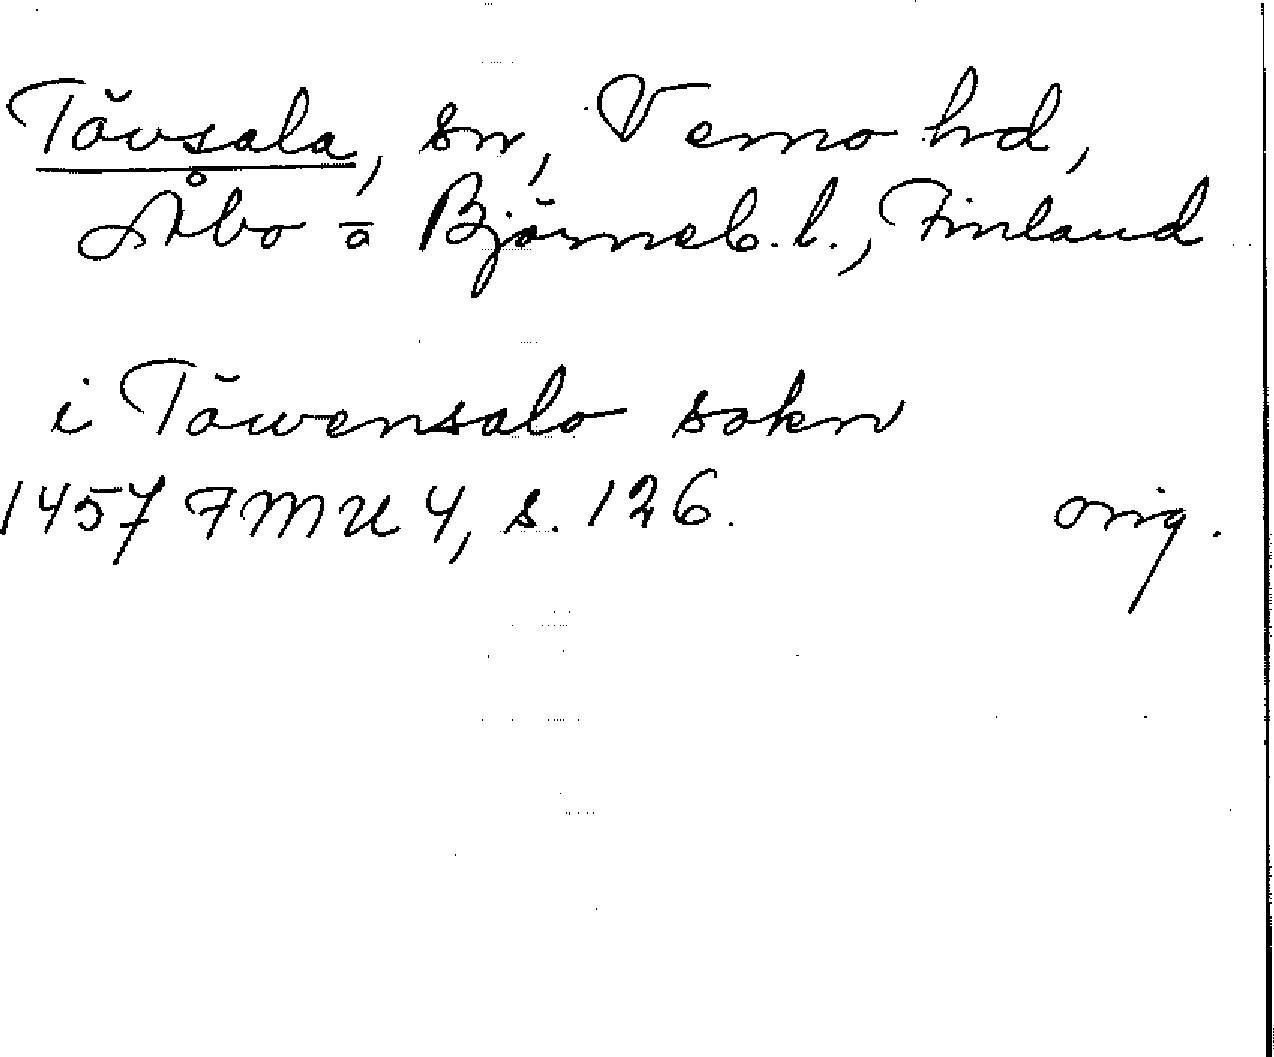 Tövsala, sn, Vemo hd,
Åbo o Björneb. l., Finland
i Töwensalo sokn
1457 FMU 4, s. 126. orig.